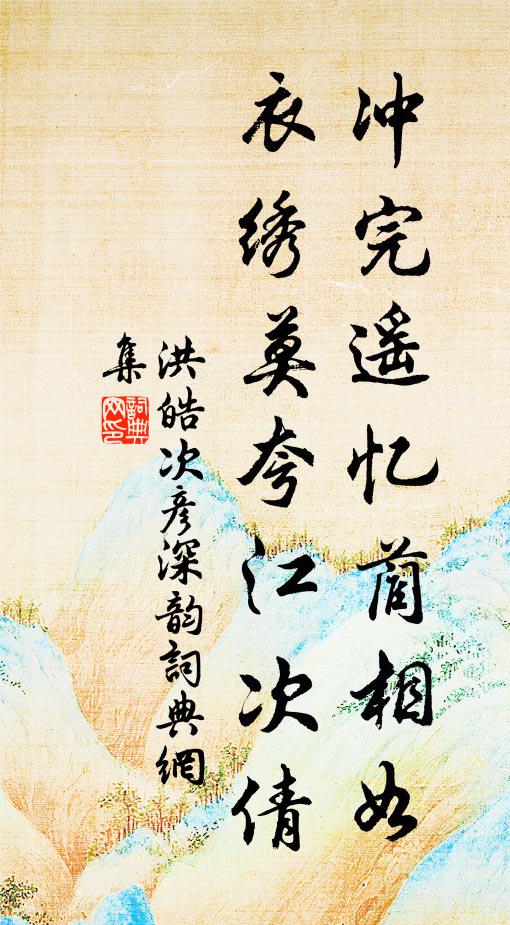 冲完遥忆蔺相如
衣绣莫夸江次倩
洪皓次彦深韵詞典網
集
詞典網印